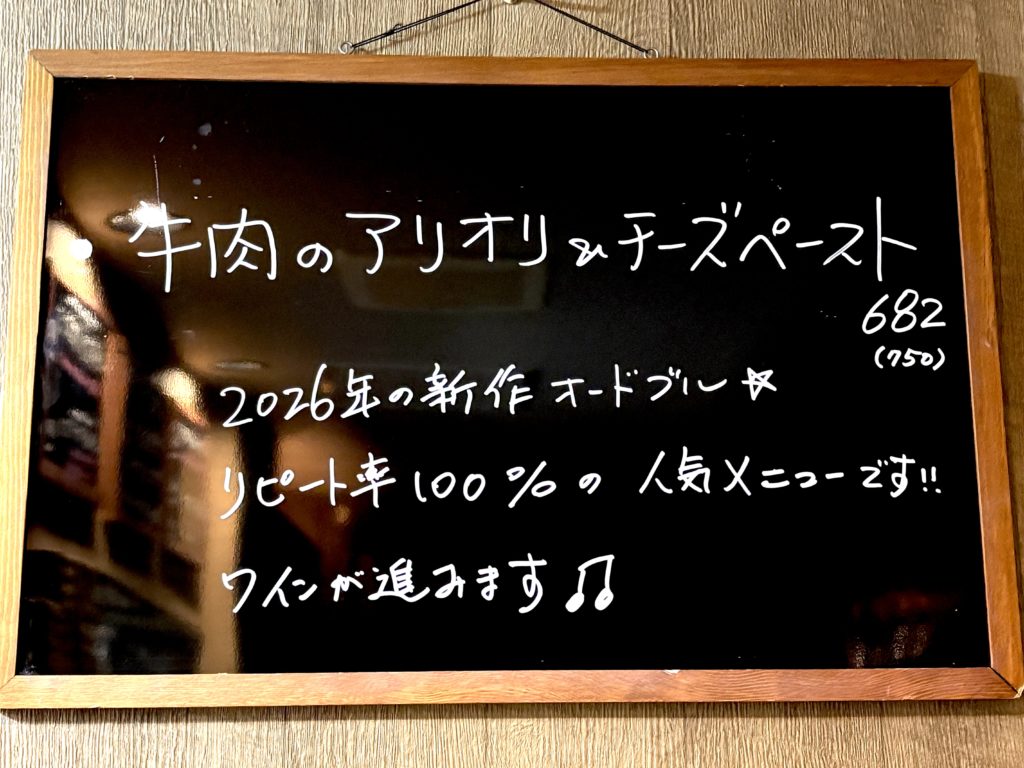 ・牛肉のアリオリ&チーズペースト
682
(750)
2026年の新作オードブル☆
リピート率100%の人気メニューです!!
ワインが進みます♫